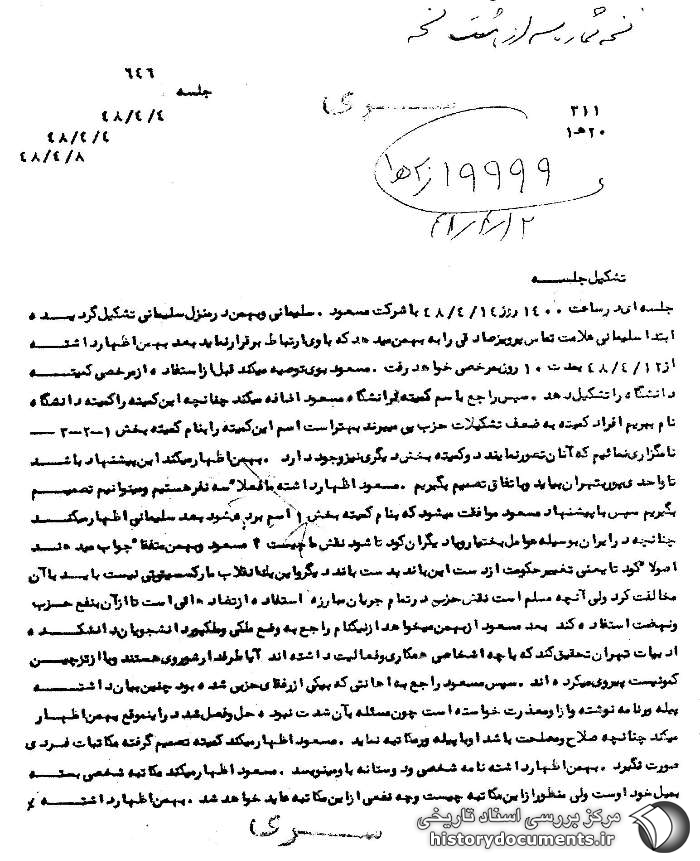 نسخه شماره سه از هشت نسخه
٦٤٦
جلسه
٤٨/٤/٤
٤٨/٤/٤
٤٨/٤/٨
ســـری
٣١١
٢٠هـ١
19999
تشکیل جلسه
جلسه ای در ساعت ١٤٠٠ روز ٤٨/٤/١٤ با شرکت مسعود . سلیمانی و بهمن در منزل سلیمانی تشکیل گردیده
ابتدا سلیمانی علامت تماس پرویز صادقی را به بهمن میدهد که با وی ارتباط برقرار نماید بعد بهمن اظهار داشته
از ٤٨/٤/١٢ بمدت ١٠ روز بمرخصی خواهد رفت . مسعود بوی توصیه میکند قبل از استفاده از مرخصی کمیته
دانشگاه را تشکیل دهد . سپس راجع با سم کمیته دانشگاه مسعود اضافه میکند چنانچه این کمیته را کمیته دانشگاه
نام ببریم افراد کمیته به ضعف تشکیلات حزب پی میبرند بهتر است اسم این کمیته را بنام کمیته بخش ١-٢-٣
نامگزاری نمائیم که آنان تصور نمایند دو کمیته بخش دیگری نیز وجود دارد . بهمن اظهار میکند این پیشنهاد باشد
تا واحدی پور بتهران بیاید و با تفاق تصمیم بگیریم . مسعود اظهار داشته ما فعلا" سه نفر هستیم و میتوانیم تصمیم
بگیریم سپس با پیشنهاد مسعود موافقت میشود که بنام کمیته بخش ١ اسم برده شود بعد سلیمانی اظهار میکند
چنانچه در ایران بوسیله عوامل بختیار و یا دیگران کودتا شود نقش ما چیست ؟ مسعود و بهمن متفقا" جواب میدهند
اصولا" کودتا یعنی تغییر حکومت از دست این باند بدست باند دیگر و این با انقلاب مارکسیستی نیست باید با آن
مخالفت کرد ولی آنچه مسلم است نقش حزب در تمام جریان مبارزه استفاده از تضادهائی است تا از آن بنفع حزب
و نهضت استفاده کند بعد مسعود از بهمن میخواهد از نیکنام راجع به وضع ملکی و ملکپور دانشجویان دانشکده
ادبیات تهران تحقیق کند که با چه اشخاصی همکاری و فعالیت داشته اند آیا طرفدار شوروی هستند و یا از تز چین
کمونیست پیروی میکرده اند . سپس مسعود راجع به اهانتی که بیکی از رفقای حزبی شده بود چنین بیان داشته
پیله ور نامه نوشته و از او معذرت خواسته است چون مسئله بآن شدت نبوده و حل و فصل شد در اینموقع بهمن اظهار
میکند چنانچه صلاح و مصلحت باشد او با پیله ور مکاتبه نماید . مسعود اظهار میکند کمیته تصمیم گرفته مکاتبات فردی
صورت نگیرد . بهمن اظهار داشته نامه شخصی و دوستانه باو مینویسد . مسعود اظهار میکند مکاتبه شخصی بسته
بمیل خود اوست ولی منظور از این مکاتبه چیست و چه نفعی از این مکاتبه عاید خواهد شد . بهمن اظهار داشته
ســـری
مرکز بررسی اسناد تاریخی
historydocuments.ir